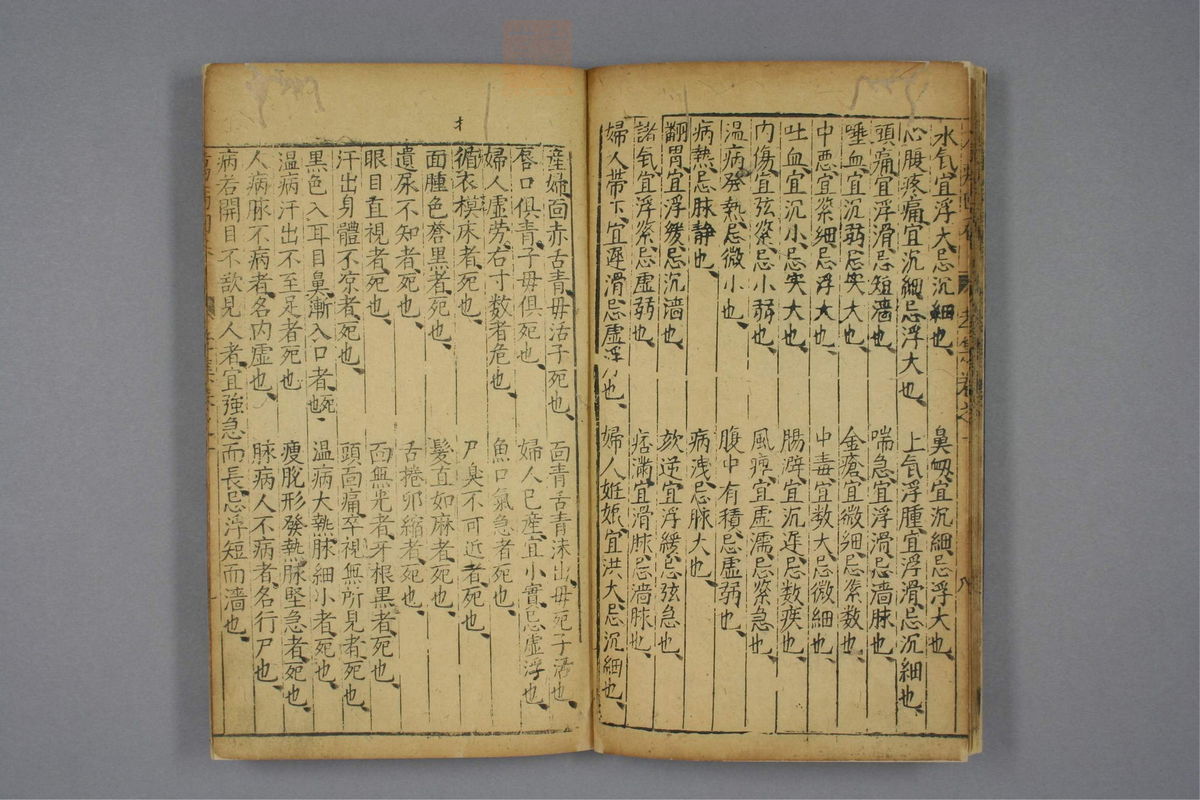 水氣宜浮大忌沉細也、鼻衂宜沉細忌浮大也、
心腹疼痛宜沉細忌浮大也、上氣浮腫宜浮滑忌沉細也、
頭痛宜浮滑忌短濇也、喘急宜浮滑忌濇脉也、
唾血宜沉弱忌実大也、金瘡宜微細忌緊数也、
中悪宜緊細忌浮大也、中毒宜数大忌微細也、
吐血宜沉小忌実大也、腸澼宜沉遅忌数疾也、
内傷宜弦緊忌小弱也、風痺宜虚濡忌緊急也、
温病發熱忌微小也、腹中有積忌虚弱也、
病熱忌脉静也、病洩忌脉大也、
翻胃宜浮緩忌沉濇也、欬逆宜浮緩忌弦急也、
諸氣宜浮緊忌虚弱也、痞滿宜滑脉忌濇脉也、
婦人帶下宜遲滑忌虚浮也、婦人姙娠宜洪大忌沉細也、
産婦面赤舌青母活子死也、面青舌青沫出母死子活也、
唇口俱青子母俱死也、婦人已産宜小實忌虚浮也、
婦人虛劳右寸数者危也、魚口氣急者死也、
循衣模床者死也、尸臭不可近者死也、
面腫色蒼黒者死也、髮直如麻者死也、
遺尿不知者死也、舌捲卵縮者死也、
眼目直視者死也、面無光者牙根黒者死也、
汗出身體不凉者死也、頭面痛卒視無所見者死也、
黒色入耳目鼻漸入口者死也、温病大熱脉細小者死也、
温病汗出不至足者死也、瘦脫形發熱脉堅急者死也、
人病脉不病者名内虚也、脉病人不病者名行尸也、
病若開目不欲見人者宜強急而長忌浮短而濇也、